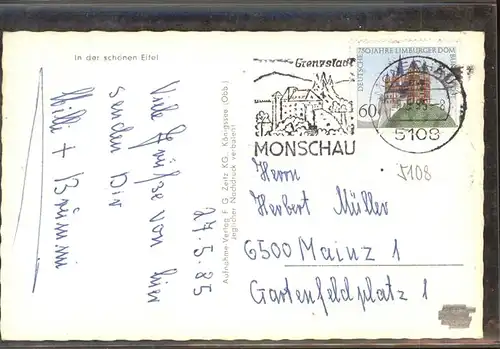 In der schönen Eifel
24.5.85
Viele Grüße von hier
senden Dir
Willi +
Aufnahme-Verlag F. G. Zeitz KG., Königssee (Obb.)
Jeglicher Nachdruck verboten!
Grenzstadt
MONSCHAU
DEUTSCHE
750 JAHRE LIMBURGER DOM
60
5108
5108
Herrn
Herbert Müller
6500 Mainz 1
Gartenfeldplatz 1